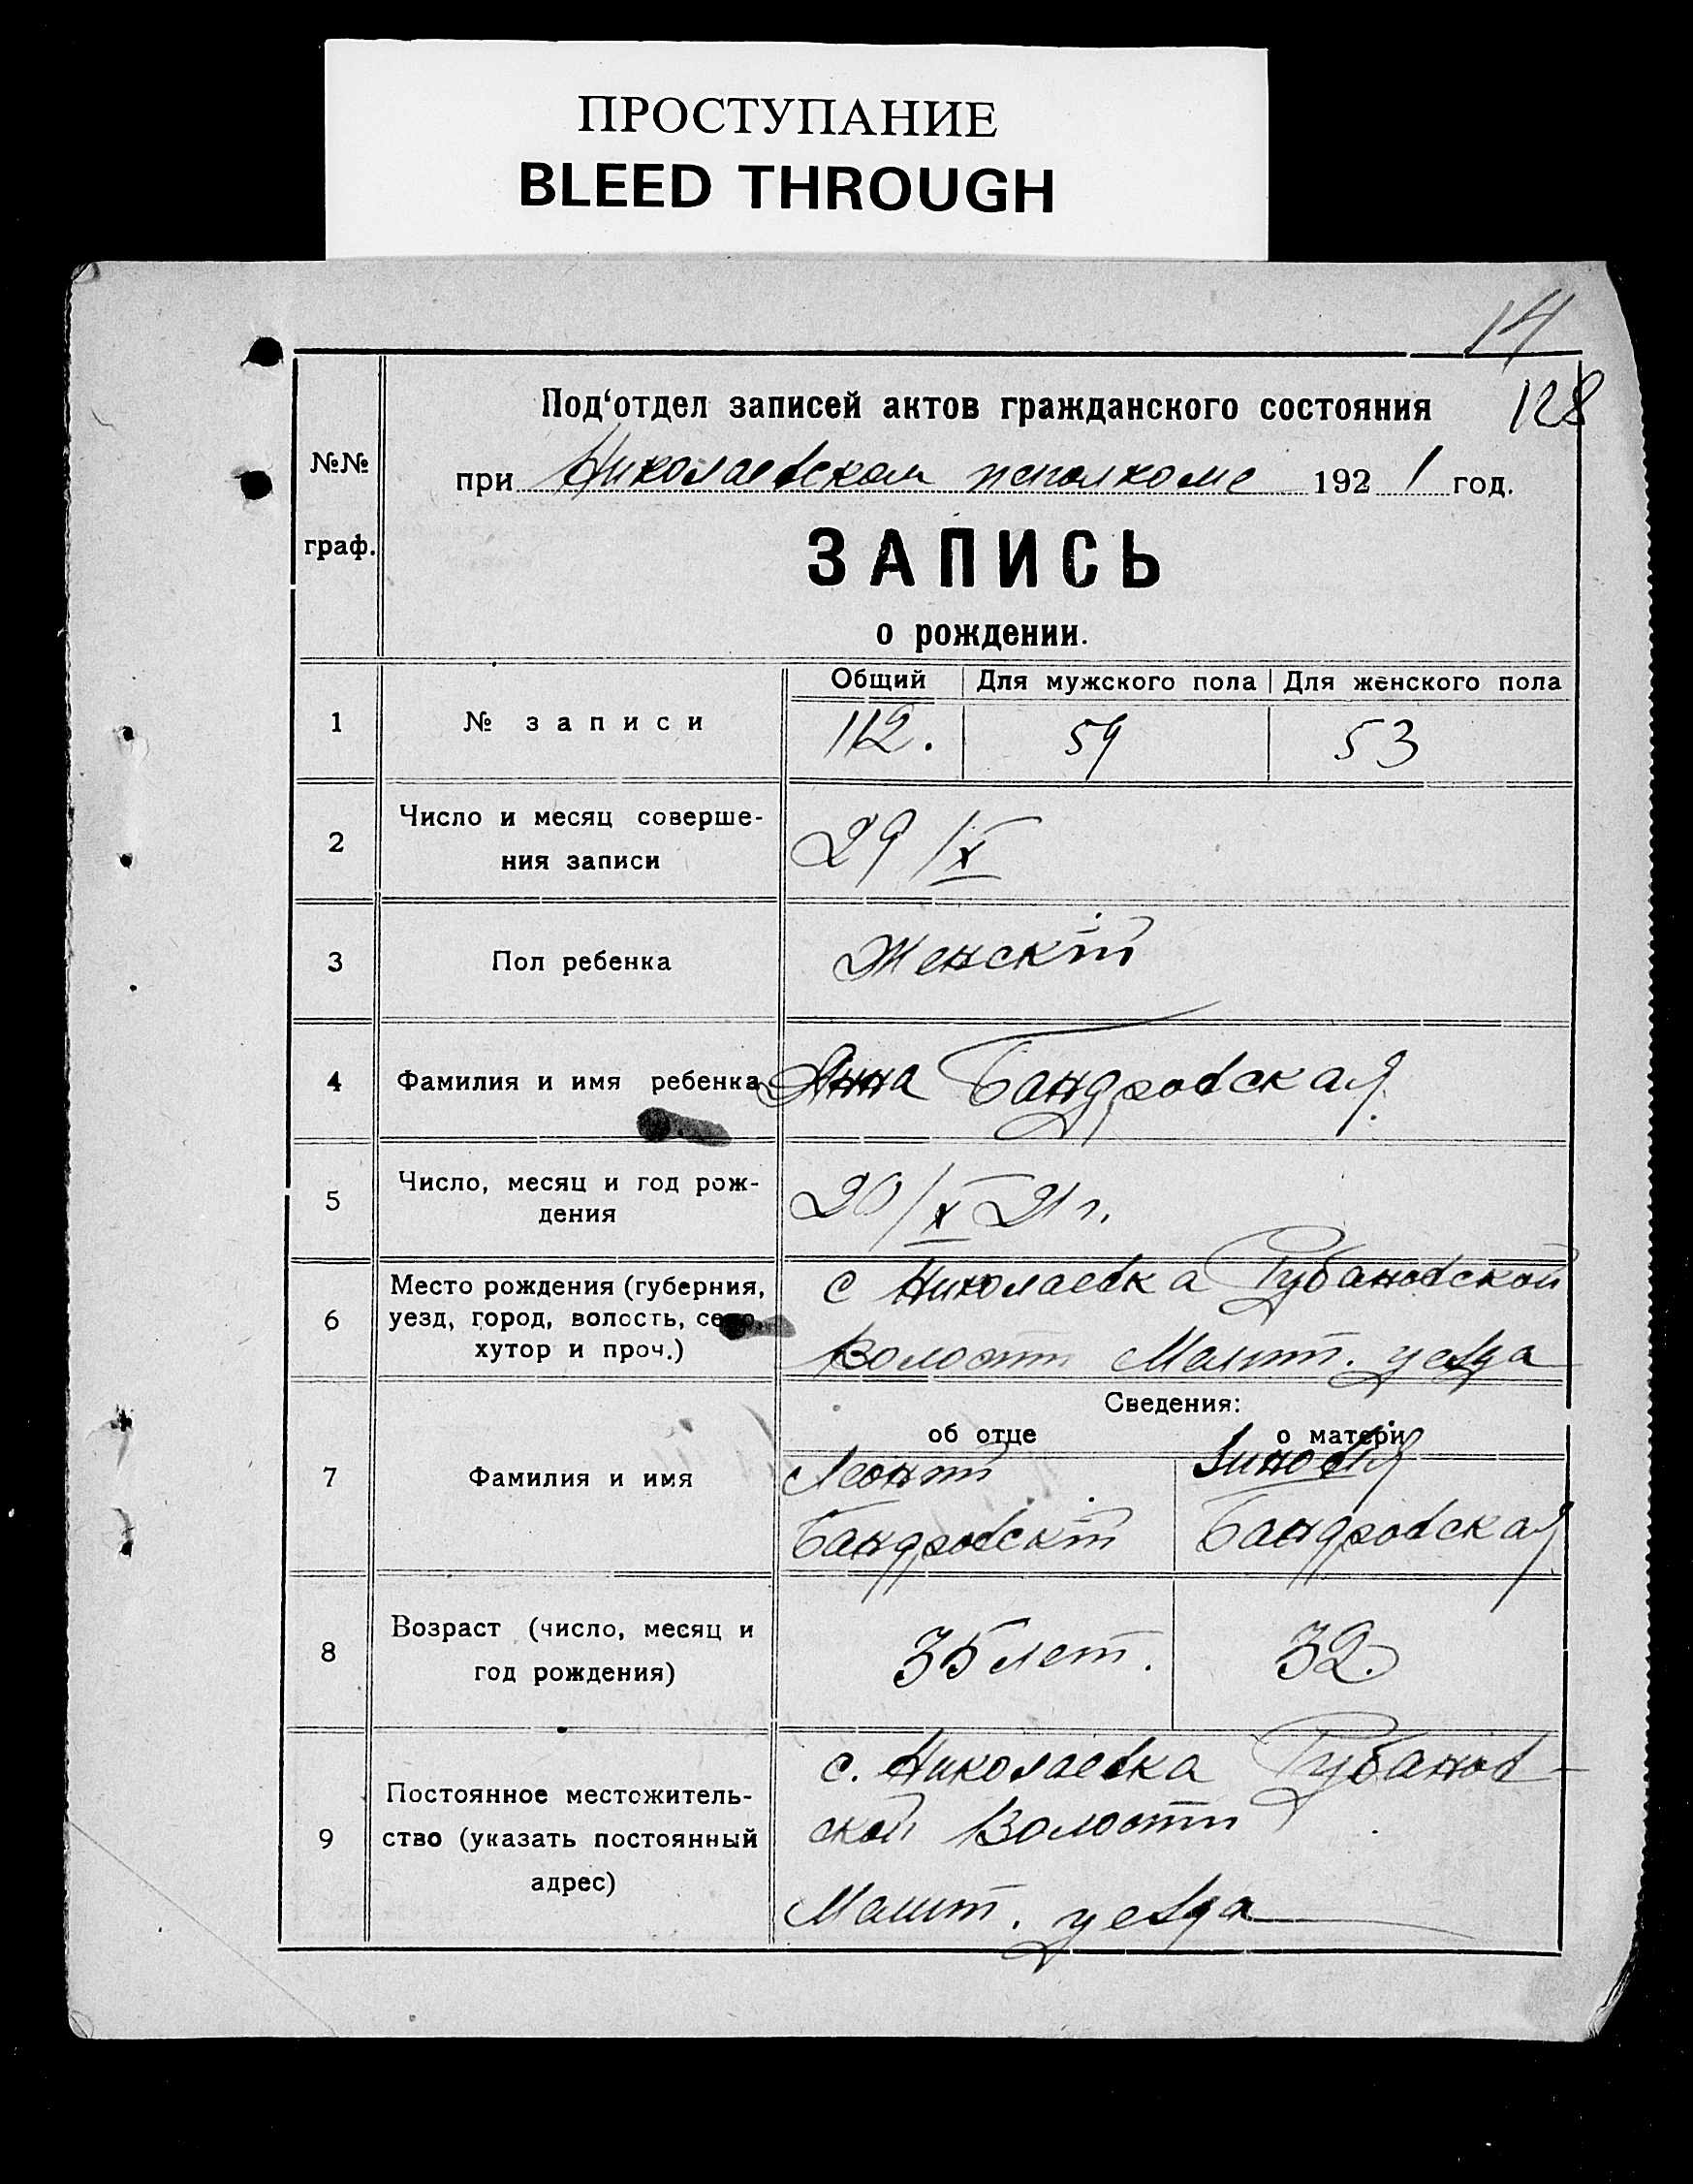 ПРОСТУПАНИЕ
BLEED THROUGH
14
128
№№
граф.
Под‘отдел записей актов гражданского состояния
при Николаевском исполкоме 1921 год.
ЗАПИСЬ
о рождении.
Общий Для мужского пола Для женского пола
1 № записи 112. 59 53
2 Число и месяц соверше-
ния записи 29/X
3 Пол ребенка Женскій
4 Фамилия и имя ребенка Анна Бандровская
5 Число, месяц и год рож-
дения 20/X 21 г.
6 Место рождения (губерния,
уезд, город, волость, село,
хутор и проч.)
с Николаевка Рубановской
Волости Мелит. уезда
Сведения:
об отце о матери
7 Фамилия и имя
Леонтій Зиновія
Бандровскій Бандровская
8 Возраст (число, месяц и
год рождения)
35 лет. 32.
9 Постоянное местожитель-
ство (указать постоянный
адрес)
с. Николаевка Рубанов-
ской Волости
Мелит. уезда